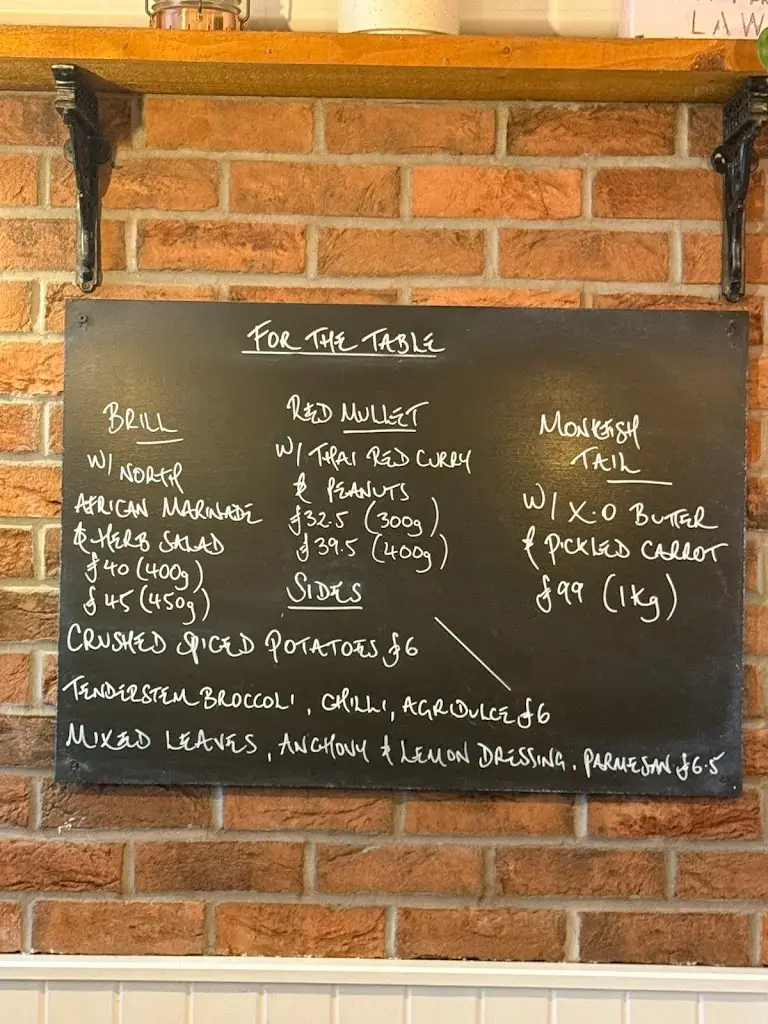 LAW
FOR THE TABLE
BRILL
W/ NORTH
AFRICAN MARINADE
& HERB SALAD
£40 (400g)
£45 (450g)
RED MULLET
W/ THAI RED CURRY
& PEANUTS
£32.5 (300g)
£39.5 (400g)
MONKFISH
TAIL
W/ X.O BUTTER
& PICKLED CARROT
£99 (1Kg)
SIDES
CRUSHED SPICED POTATOES £6
TENDERSTEM BROCCOLI, CHILLI, AGRIDULCE £6
MIXED LEAVES, ANCHOVY & LEMON DRESSING, PARMESAN £6.5